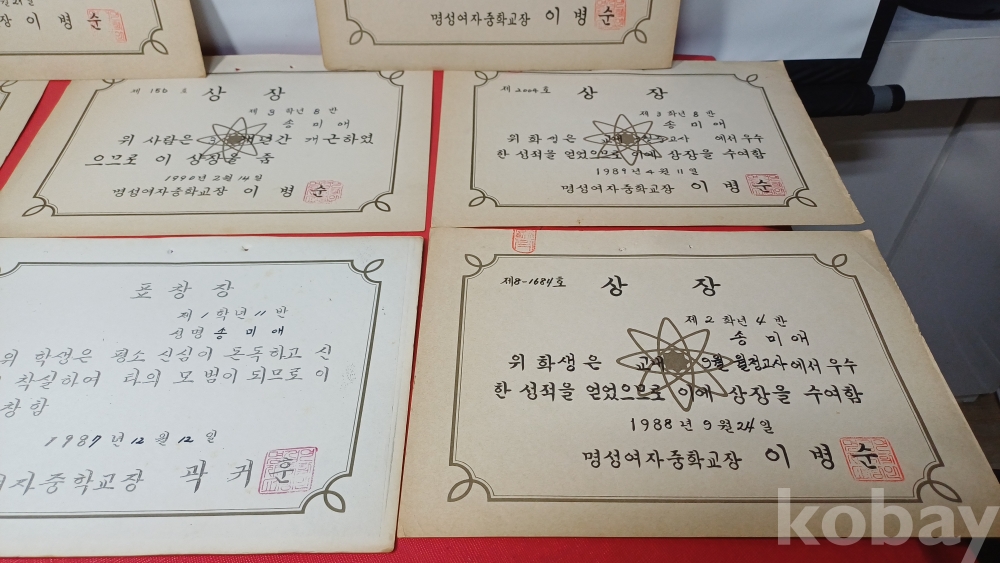 장 이 병 순
명성여자중학교장 이 병 순
제 186 호
상 장
제 3 학년 8 반
송 미 애
위 사람은 개년간 개근하였
으므로 이 상장을 줌
1990년 2월 14일
명성여자중학교장 이 병 순
제 2004 호
상 장
제 3 학년 8 반
송 미 애
위 학생은 교내 고사 에서 우수
한 성적을 얻었으므로 이에 상장을 수여함
1989년 4월 11일
명성여자중학교장 이 병 순
표 창 장
제 1 학년 11 반
성명 송 미 애
위 학생은 평소 신심이 돈독하고 신
착실하여 타의 모범이 되므로 이
창함
1987년 12월 12일
여자중학교장 곽 커 훈
제8-1684호
상 장
제 2 학년 4 반
송 미 애
위 학생은 교내 9월 월정고사에서 우수
한 성적을 얻었으므로 이에 상장을 수여함
1988년 9월 24일
명성여자중학교장 이 병 순
kobay